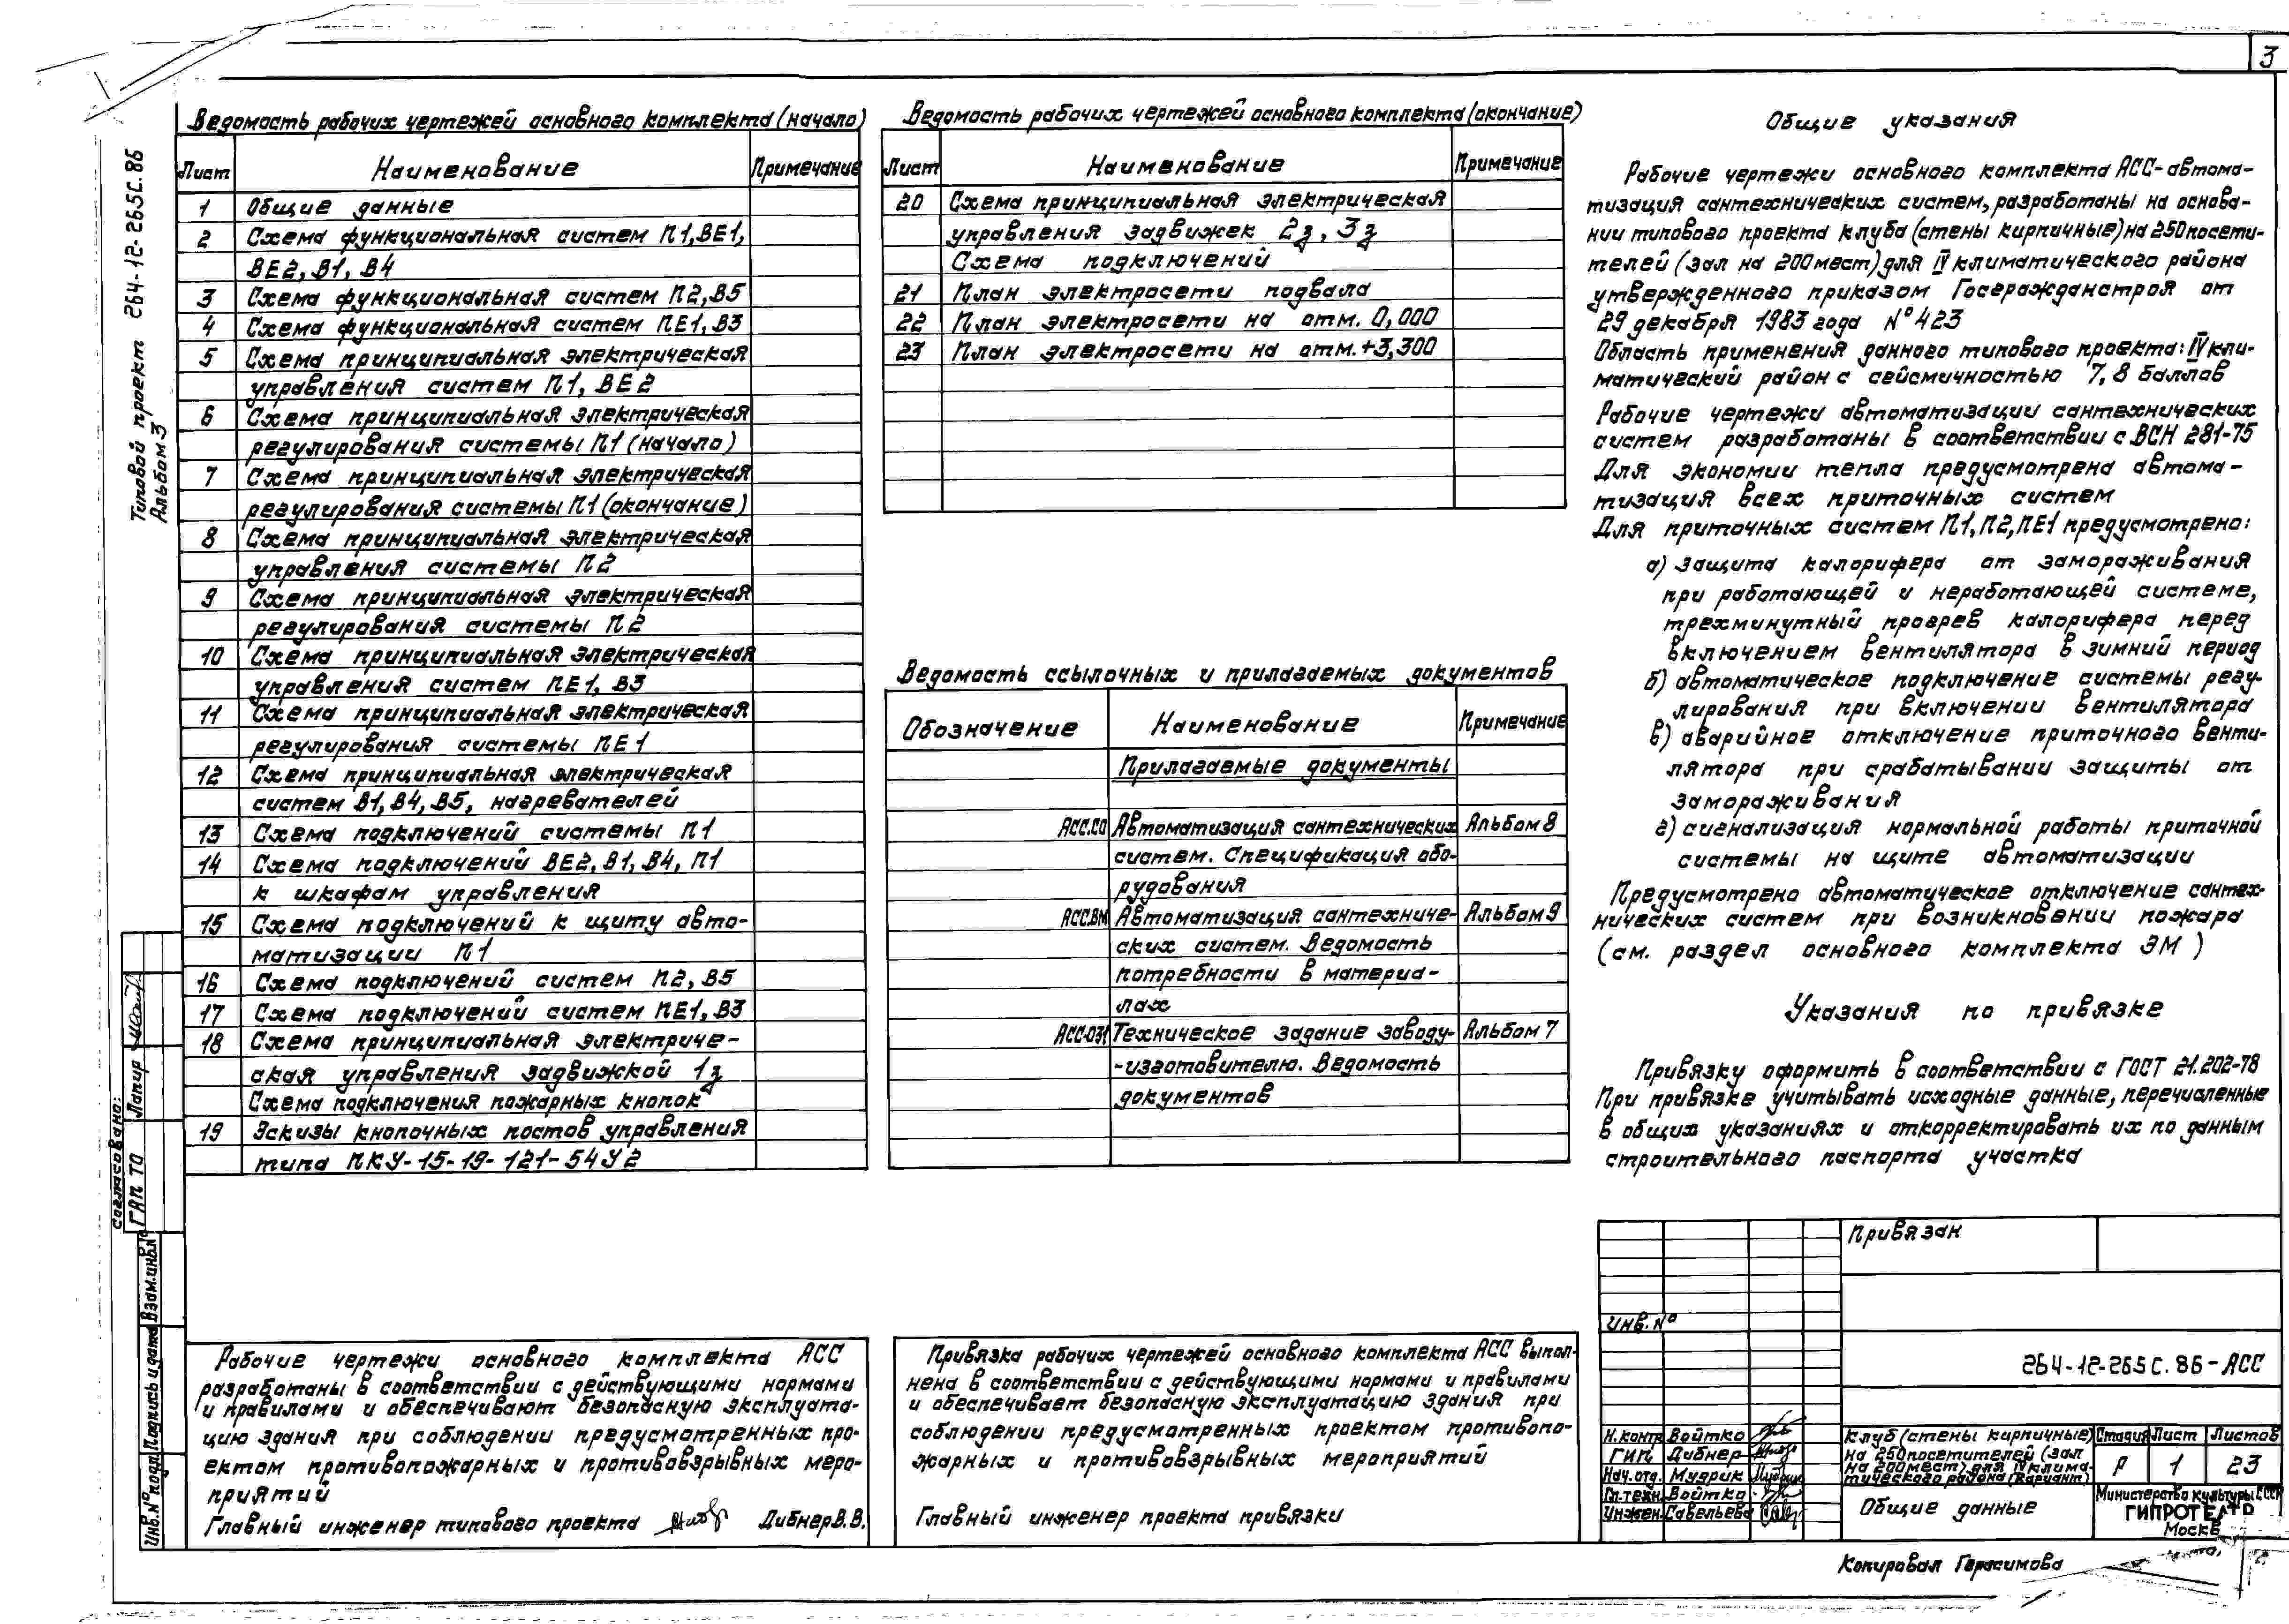 3
Типовой проект 264-12-265С.86
Альбом 3
Ведомость рабочих чертежей основного комплекта (начало)
Лист Наименование Примечание
1 Общие данные
2 Схема функциональная систем П1, ВЕ1,
ВЕ2, В1, В4
3 Схема функциональная систем П2, В5
4 Схема функциональная систем ПЕ1, В3
5 Схема принципиальная электрическая
управления систем П1, ВЕ2
6 Схема принципиальная электрическая
регулирования системы П1 (начало)
7 Схема принципиальная электрическая
регулирования системы П1 (окончание)
8 Схема принципиальная электрическая
управления системы П2
9 Схема принципиальная электрическая
регулирования системы П2
10 Схема принципиальная электрическая
управления систем ПЕ1, В3
11 Схема принципиальная электрическая
регулирования системы ПЕ1
12 Схема принципиальная электрическая
систем В1, В4, В5, нагревателей
13 Схема подключений системы П1
14 Схема подключений ВЕ2, В1, В4, П1
к шкафам управления
15 Схема подключений к щиту авто-
матизации П1
16 Схема подключений систем П2, В5
17 Схема подключений систем ПЕ1, В3
18 Схема принципиальная электриче-
ская управления задвижкой 1з
Схема подключения пожарных кнопок
19 Эскизы кнопочных постов управления
типа ПКУ-15-19-121-54У2
Ведомость рабочих чертежей основного комплекта (окончание)
Лист Наименование Примечание
20 Схема принципиальная электрическая
управления задвижек 2з, 3з
Схема подключений
21 План электросети подвала
22 План электросети на отм. 0,000
23 План электросети на отм. +3,300
Ведомость ссылочных и прилагаемых документов
Обозначение Наименование Примечание
Прилагаемые документы
АСС.СО Автоматизация сантехнических Альбом 8
систем. Спецификация обо-
рудования
АСС.ВМ Автоматизация сантехниче- Альбом 9
ских систем. Ведомость
потребности в материа-
лах
АСС-ОЗ1 Техническое задание заводу- Альбом 7
-изготовителю. Ведомость
документов
Общие указания
Рабочие чертежи основного комплекта АСС-автома-
тизация сантехнических систем, разработаны на основа-
нии типового проекта клуба (стены кирпичные) на 250 посети-
телей (зал на 200 мест) для IV климатического района
утвержденного приказом Госгражданстроя от
29 декабря 1983 года № 423
Область применения данного типового проекта: IV кли-
матический район с сейсмичностью 7, 8 баллов
Рабочие чертежи автоматизации сантехнических
систем разработаны в соответствии с ВСН 281-75
Для экономии тепла предусмотрена автома-
тизация всех приточных систем
Для приточных систем П1, П2, ПЕ1 предусмотрено:
а) защита калорифера от замораживания
при работающей и неработающей системе,
трехминутный прогрев калорифера перед
включением вентилятора в зимний период
б) автоматическое подключение системы регу-
лирования при включении вентилятора
в) аварийное отключение приточного венти-
лятора при срабатывании защиты от
замораживания
г) сигнализация нормальной работы приточной
системы на щите автоматизации
Предусмотрено автоматическое отключение сантех-
нических систем при возникновении пожара
(см. раздел основного комплекта ЭМ)
Указания по привязке
Привязку оформить в соответствии с ГОСТ 21.202-78
При привязке учитывать исходные данные, перечисленные
в общих указаниях и откорректировать их по данным
строительного паспорта участка
Согласовано:
ГАП ТО Лапир
Взам.инв.№
Подпись и дата
Инв.№подл.
Рабочие чертежи основного комплекта АСС
разработаны в соответствии с действующими нормами
и правилами и обеспечивают безопасную эксплуата-
цию здания при соблюдении предусмотренных про-
ектом противопожарных и противовзрывных меро-
приятий
Главный инженер типового проекта Дибнер В.В.
Привязка рабочих чертежей основного комплекта АСС выпол-
нена в соответствии с действующими нормами и правилами
и обеспечивает безопасную эксплуатацию здания при
соблюдении предусмотренных проектом противопо-
жарных и противовзрывных мероприятий
Главный инженер проекта привязки
Привязан
Инв.№
264-12-265С.86-АСС
Н.контр. Войтко
ГИП Дибнер
Нач.отд. Мудрик
Гл.техн. Войтко
Инжен. Савельева
Клуб (стены кирпичные)
на 250 посетителей (зал
на 200 мест) для IV клима-
тического района (Вариант)
Стадия Лист Листов
Р 1 23
Общие данные
Министерство культуры СССР
ГИПРОТЕАТР
Москв
Копировал Герасимова